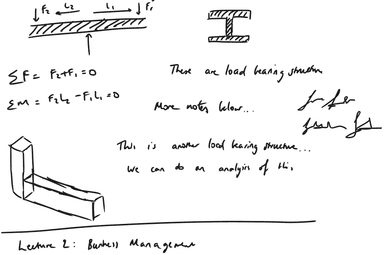 F₂ L₂ L₁ F₁
ΣF = F₂+F₁ = 0
These are load bearing structures
ΣM = F₂L₂ - F₁L₁ = 0
More notes below...
This is another load bearing structure...
We can do an analysis of this
Lecture 2: Business Management